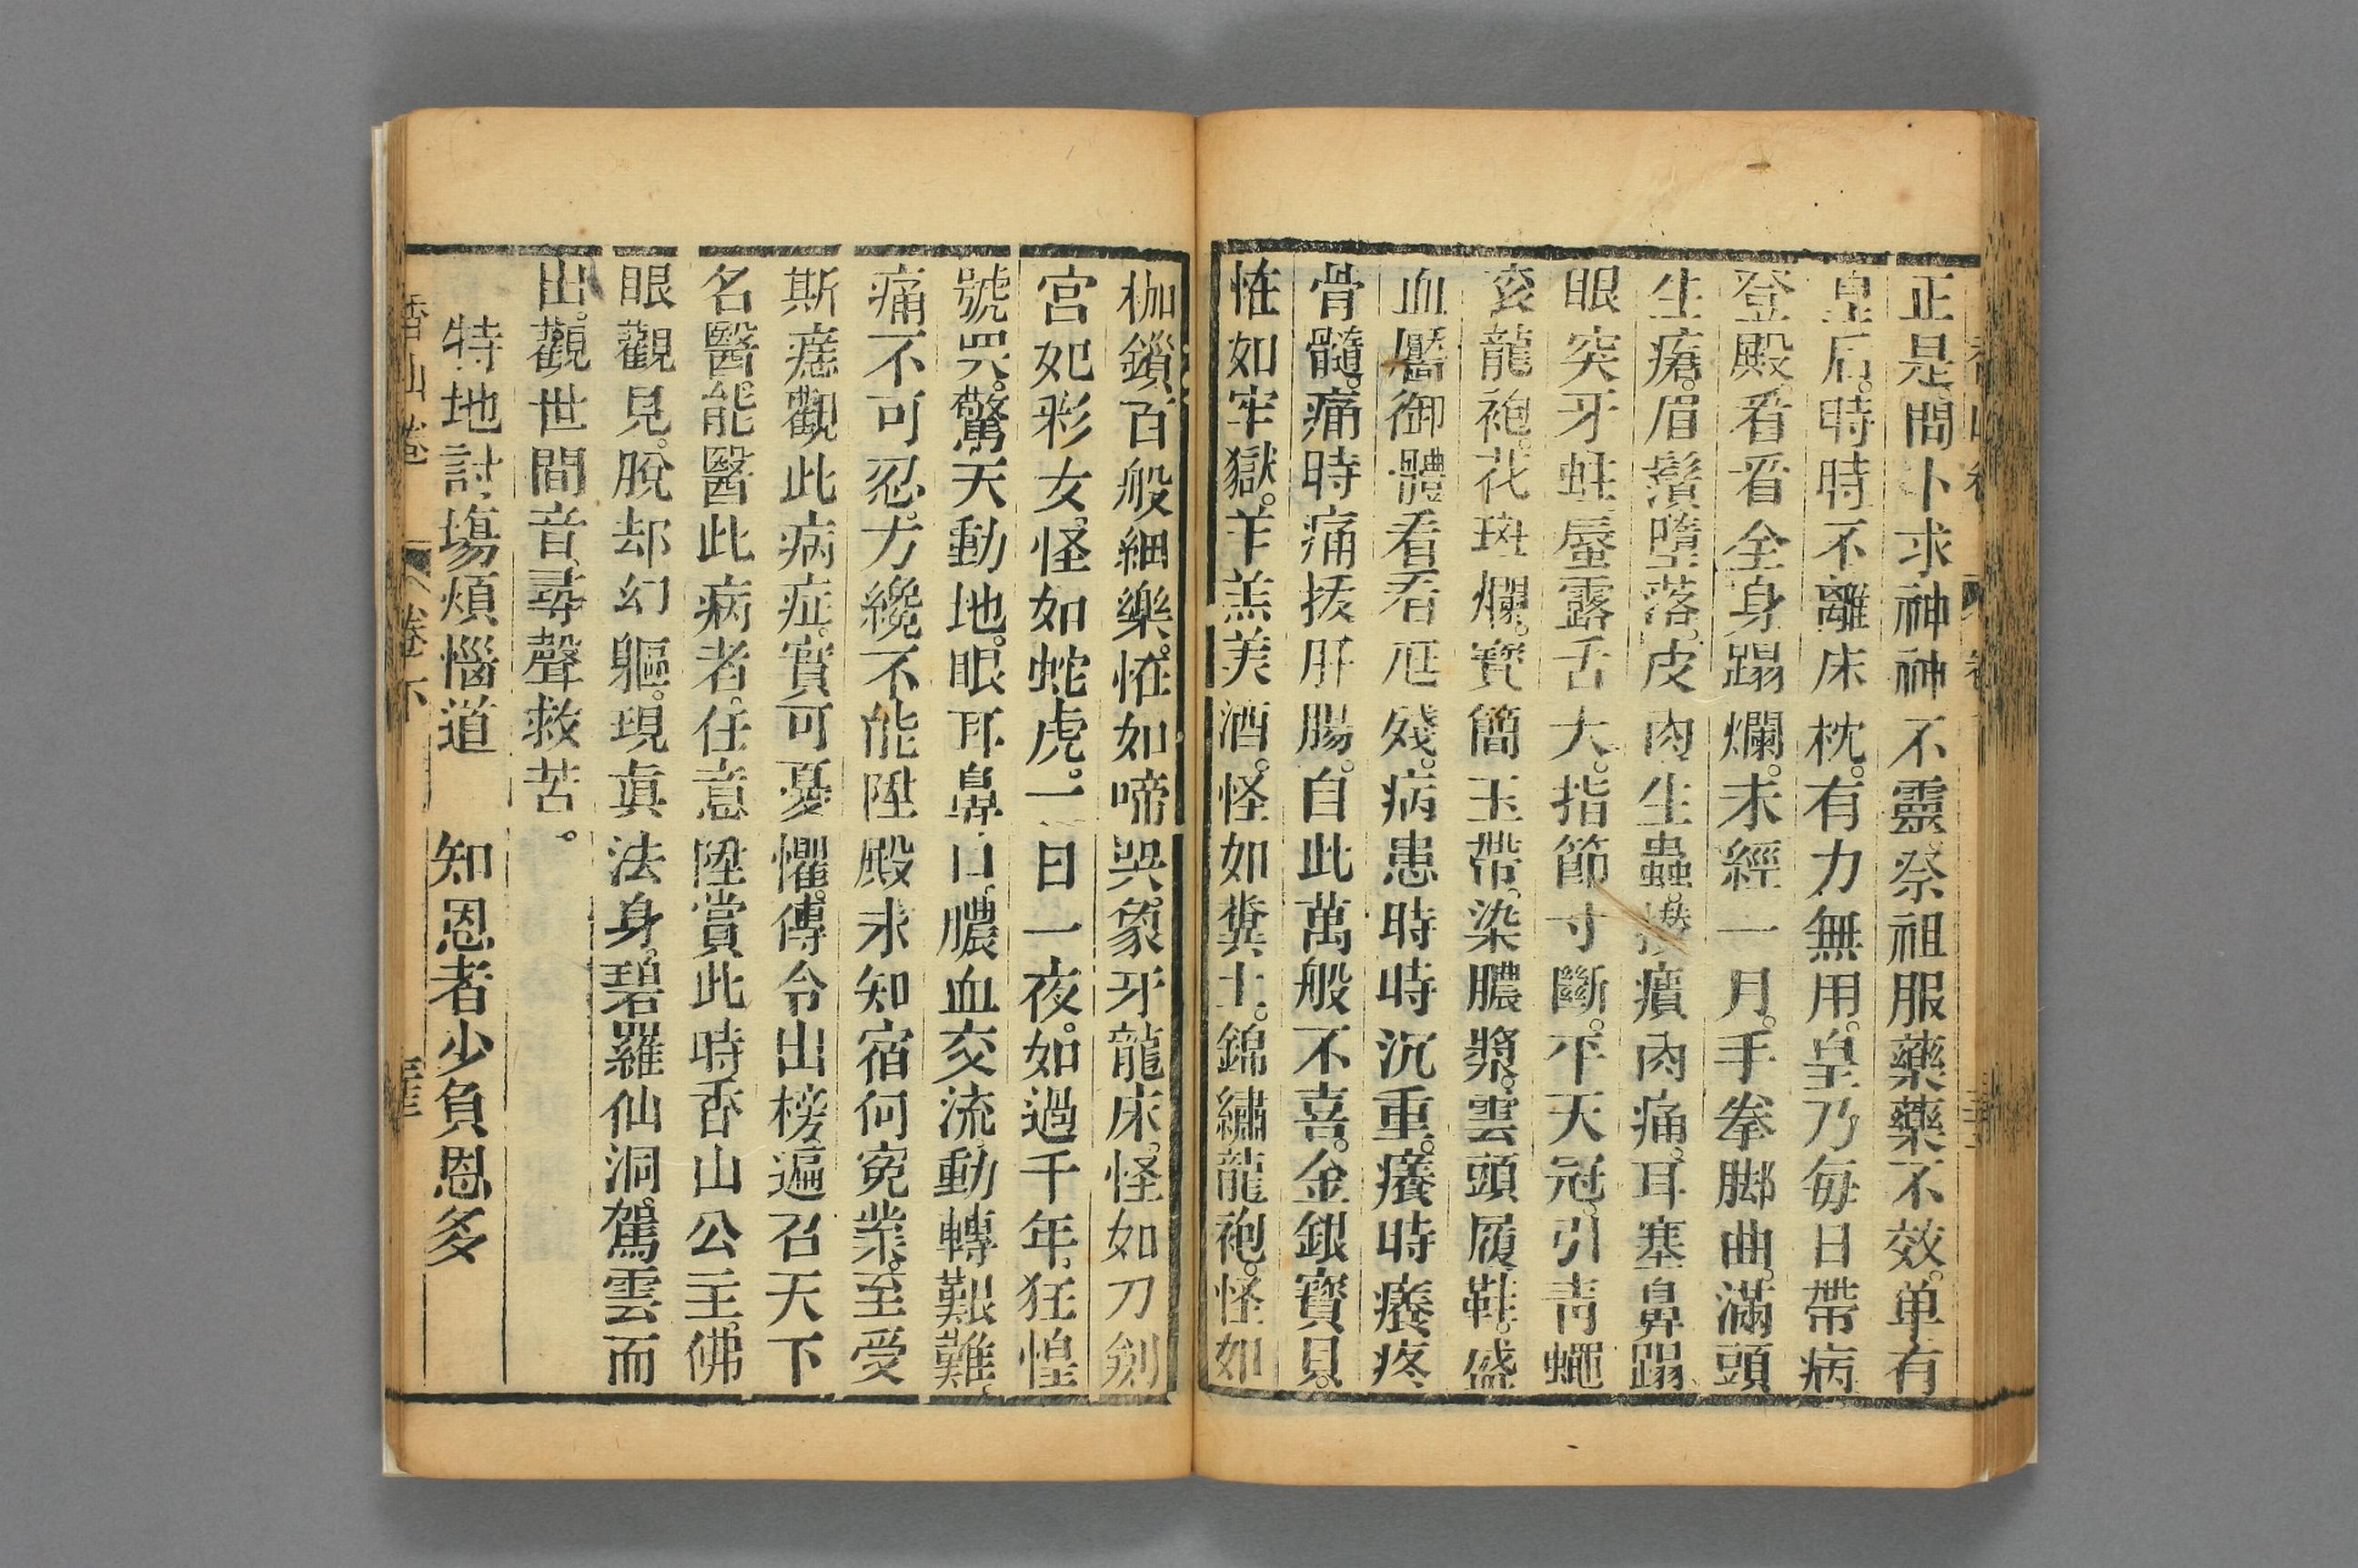 正是問卜求神神不靈祭祖服藥藥不效。单有
皇后。時時不離床枕。有力無用。皇乃每日帶病
登殿。看看全身蹋爛。未經一月。手拳脚曲。滿頭
生瘡。眉鬚墮落。皮肉生蟲。㿈瘡肉痛。耳塞鼻蹋
眼突牙蛀。唇露舌大。指節寸斷。平天冠。引青蠅
衮龍袍。花斑爛。寶簡玉帶。染膿漿。雲頭履鞋。盛
血靨御體看看尫殘。病患時時沉重。癢時癢疼
骨髓。痛時痛拔肝腸。自此萬般不喜。金銀寶貝。
恠如牢獄。羊羔美酒。怪如糞土。錦繡龍袍。怪如
枷鎖。百般細樂。恠如啼哭。象牙龍床。怪如刀劍
宮妃彩女。怪如蛇虎。一日一夜。如過千年。狂惶
號哭。驚天動地。眼耳鼻口。膿血交流。動轉艱難。
痛不可忍。方纔不能陞殿未知宿何寃業。至受
斯痷觀此病症。實可憂懼。傳令出榜。遍召天下
名醫。能醫此病者。任意陞賞此時香山公主。佛
眼觀見。脫却幻軀。現眞法身。碧羅仙洞。駕雲而
出。觀世間音。尋聲救苦。
特地討塲煩惱道　知恩者少負恩多
香山卷　卷下